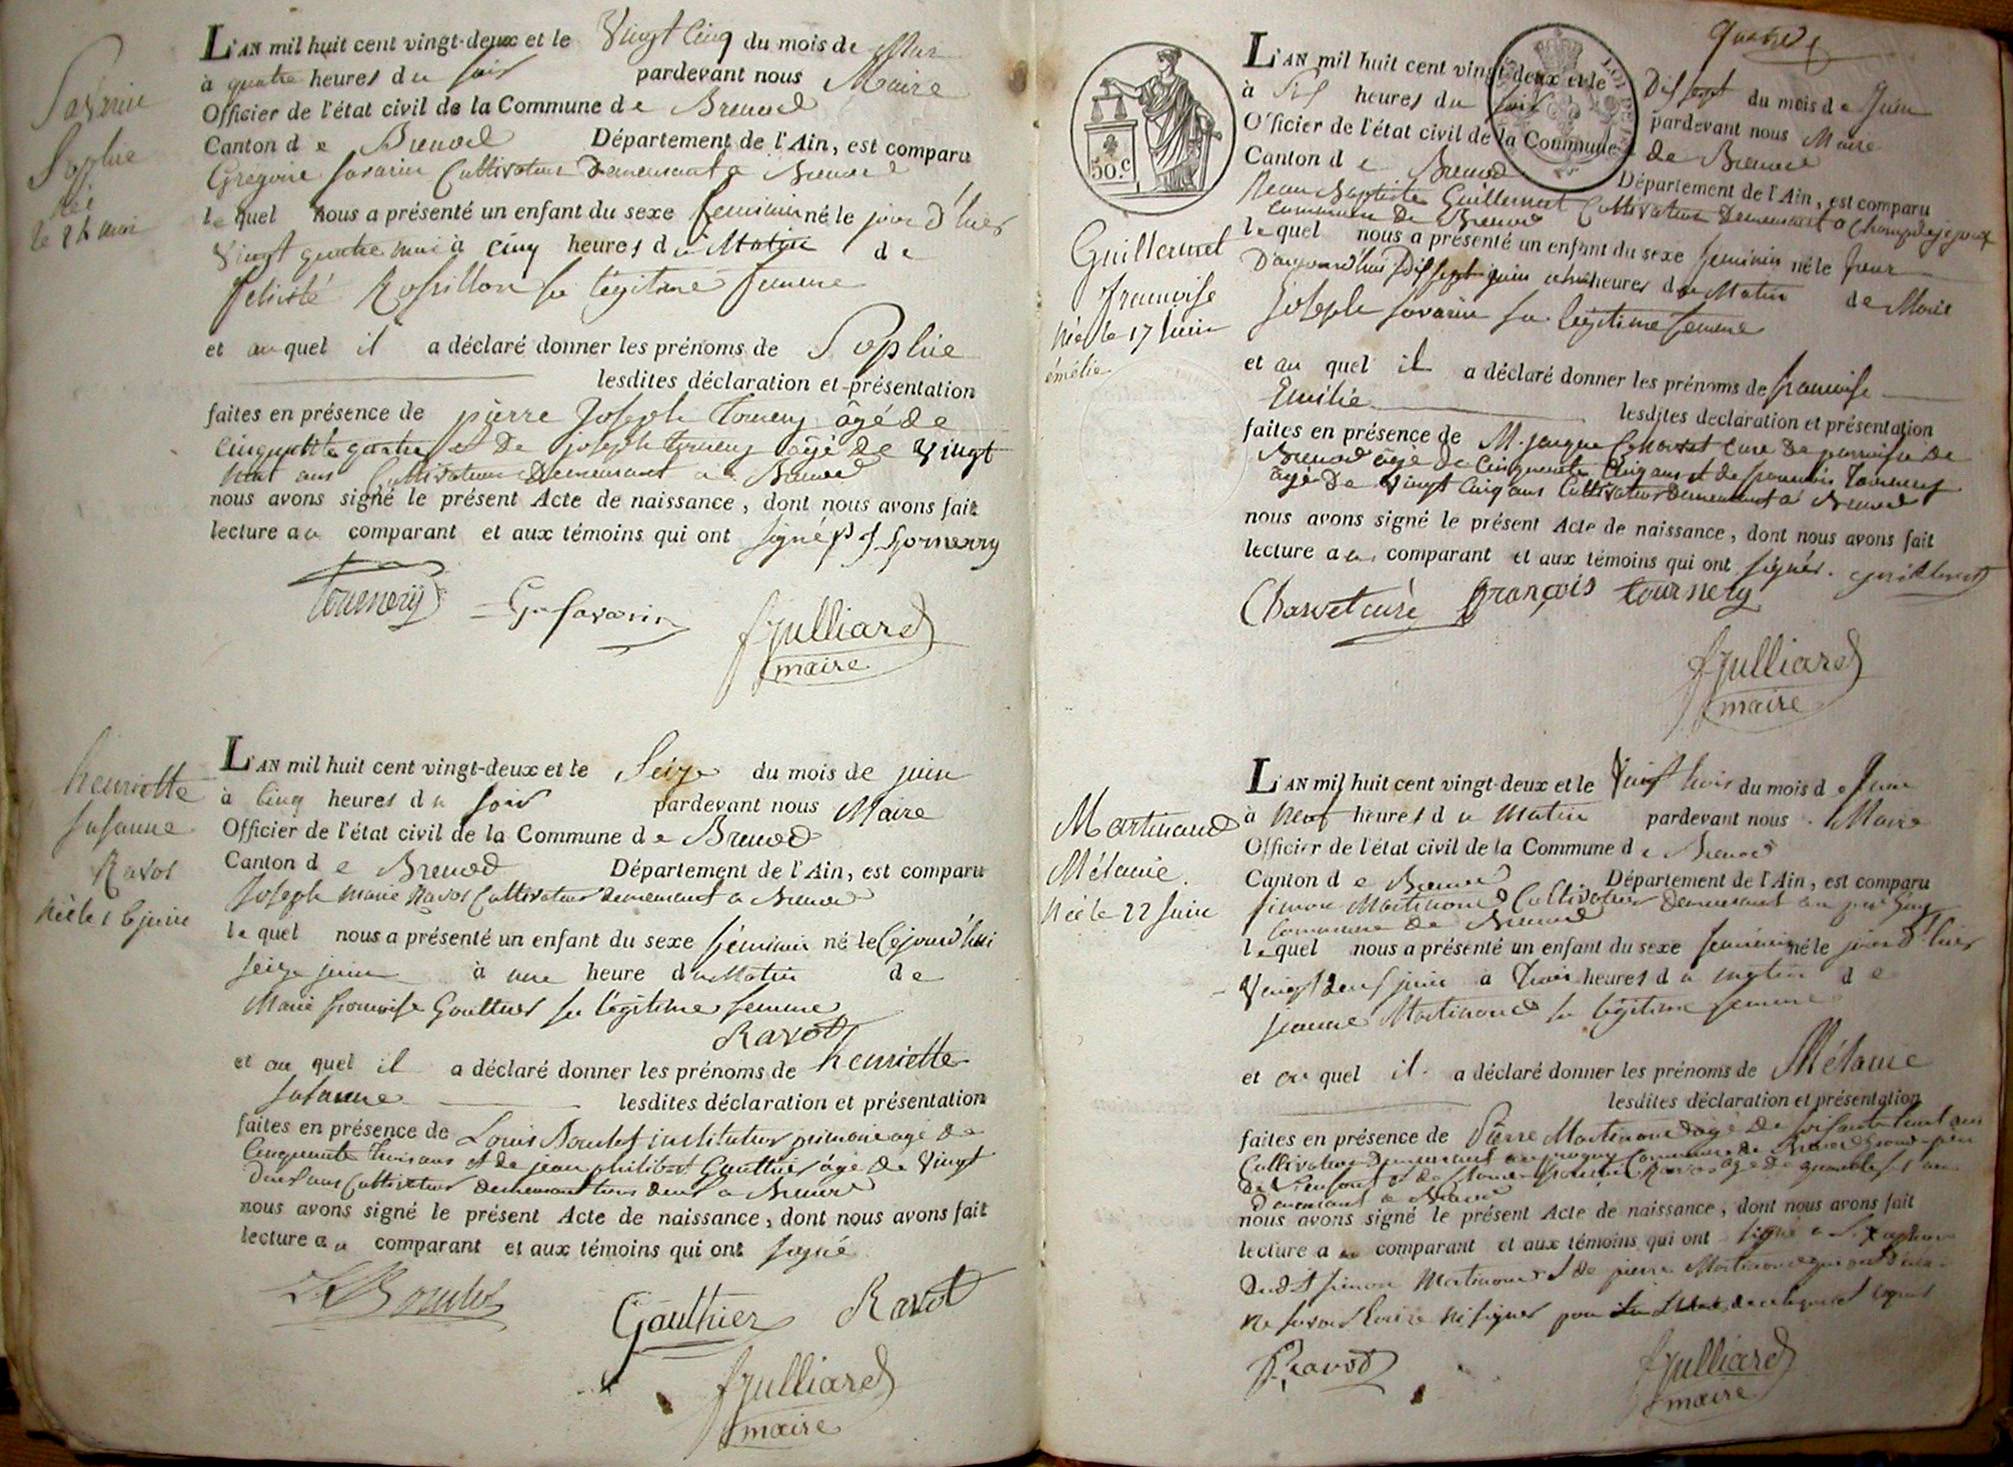 Savarin
Sophie
née
le 24 mai
L'AN mil huit cent vingt-deux et le Vingt Cinq du mois de Mai
à quatre heures du soir pardevant nous Maire
Officier de l'état civil de la Commune de Brenod
Canton de Brenod Département de l'Ain, est comparu
Gregoire Savarin Cultivateur Demeurant a Brenod
lequel nous a présenté un enfant du sexe feminin né le jour d'hier
Vingt quatre mai à cinq heures du Matin de
felicité Rossillon sa légitime femme
et auquel il a déclaré donner les prénoms de Sophie
lesdites déclaration et présentation
faites en présence de pierre Joseph Tournery âgé de
Cinquante quatre et De joseph tournery âgé de Vingt
huit ans Cultivateurs Demeurant a Brenod
nous avons signé le présent Acte de naissance, dont nous avons fait
lecture au comparant et aux témoins qui ont signé p j tornerry
Tournery G. Savarin
Julliard
maire
henriette
susanne
Ravot
née le 16 juin
L'AN mil huit cent vingt-deux et le Seize du mois de juin
à Cinq heures du soir pardevant nous Maire
Officier de l'état civil de la Commune de Brenod
Canton de Brenod Département de l'Ain, est comparu
Joseph marie Ravot Cultivateur demeurant a Brenod
lequel nous a présenté un enfant du sexe féminin né le Cejourd'hui
seize juin à une heure du Matin de
Marie françoise Gauthier sa légitime femme
Ravot
et au quel il a déclaré donner les prénoms de henriette
susanne lesdites déclaration et présentation
faites en présence de Louis Boulet instituteur primaire agé de
Cinquante trois ans et de jean philibert Gauthier âgé de Vingt
deux ans Cultivateur demeurant tous deux a Brenod
nous avons signé le présent Acte de naissance, dont nous avons fait
lecture au comparant et aux témoins qui ont signé
Gauthier Ravot
Julliard
maire
50.c
L'AN mil huit cent vingt-deux et le Dix sept du mois de Juin
à Six heures du soir pardevant nous Maire
Officier de l'état civil de la Commune de Brenod
Canton de Brenod Département de l'Ain, est comparu
Jean Baptiste Guillermet Cultivateur Demeurant a
commune de Brenod
lequel nous a présenté un enfant du sexe feminin né le Jour
D'aujourd'hui Dix sept juin a heures du Matin de Marie
Joseph Savarin sa légitime femme
Guillermet
françoise
Née le 17 Juin
émélie
et au quel il a déclaré donner les prénoms de françoise
Emélie lesdites declaration et présentation
faites en présence de M. jacque Charvet curé De parroisse de
Brenod âgé de Cinquante Cinq ans et de françois Tournery
âgé De Vingt Cinq ans Cultivateur Demeurant a Brenod
nous avons signé le présent Acte de naissance, dont nous avons fait
lecture au comparant et aux témoins qui ont signés. guillermet
Charvet curé françois tournery
Julliard
maire
Martinand
Mélanie
Née le 22 Juin
L'AN mil huit cent vingt-deux et le Vingt trois du mois de Juin
à Neuf heures du Matin pardevant nous Maire
Officier de l'état civil de la Commune de Brenod
Canton de Brenod Département de l'Ain, est comparu
Simon Martinand Cultivateur demeurant au
Commune de Brenod
lequel nous a présenté un enfant du sexe feminin né le jour d'hier
Vingt deux juin à Trois heures du matin de
jeanne Martinand sa légitime femme
et au quel il a déclaré donner les prénoms de Mélanie
lesdites déclaration et présentation
faites en présence de Pierre Martinand agé De soixante huit ans
Cultivateur Demeurant Commune de Brenod grand-père
De l'enfant et de Ravot agé de quarante ans
demeurant a Brenod
nous avons signé le présent Acte de naissance, dont nous avons fait
lecture au comparant et aux témoins qui ont signé a l'exception
Dudit Simon Martinand et de pierre Martinand qui ont
Ne savoir Ecrire Ni signer pour
Ravot
Julliard
maire